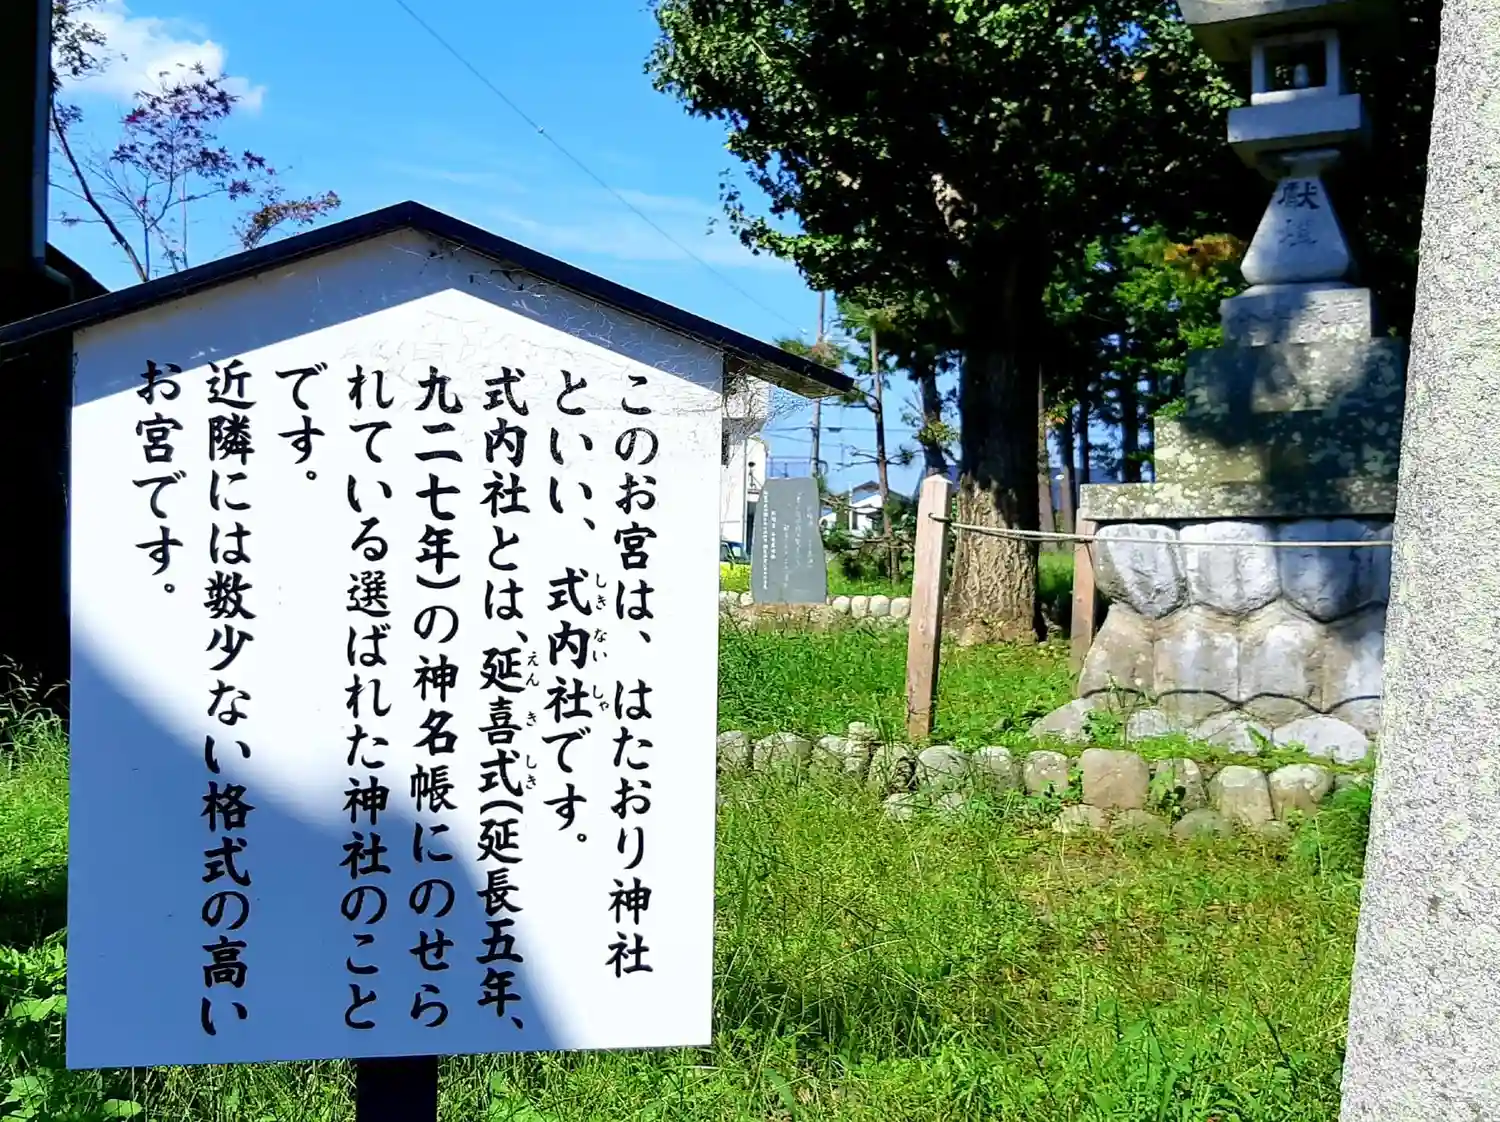 このお宮は、はたおり神社
といい、式内社です。
しきないしゃ
式内社とは、延喜式(延長五年、
えんぎしき
九二七年)の神名帳にのせら
れている選ばれた神社のこと
です。
近隣には数少ない格式の高い
お宮です。
献燈